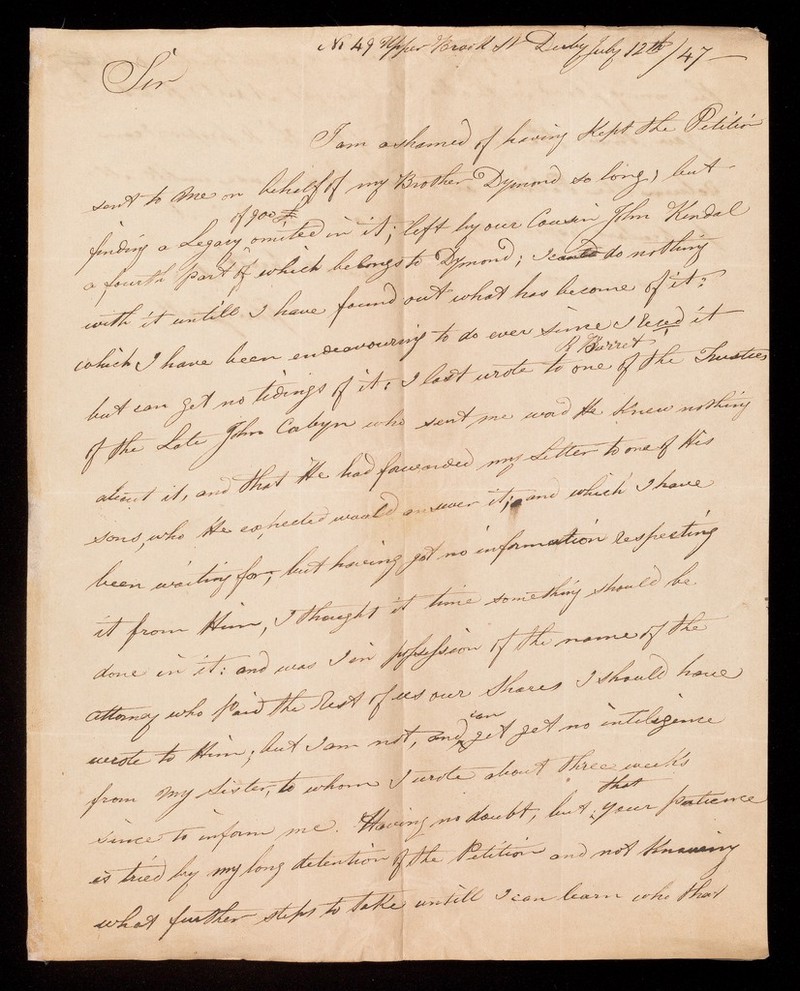 No 49 Upper Brook St Derby July 12th/47—
Sir
I am ashamed of having Kept the Petition
sent to me on behalf of my Brother Dymond so long, but
of 900£
finding a Legacy omited in it; left by our Cousin John Kendal
a fourth part of which belongs to Dymond; I can do nothing
with it untill I have found out what has become of it:
which I have been endeavouring to do ever since I recd it
but can get no tidings of it: I last wrote to one of the Trustees
R Barret
of the Late John Cabyn who sent me word He knew nothing
about it, and that He had forwarded my Letter to one of His
sons, who He expected would answer it; and which I have
been waiting for; but having got no information respecting
it from Him, I thought it time something should be
done in it: and was I in possession of the name of the
attorney who Paid the Rest of us our Shares I should have
wrote to Him; but I am not, and get get no inteligence
can
from my Sister, to whom I wrote about three weeks
since to inform me. Having no doubt, but your patience
that
is tried by my long detention of the Petition and not Knowing
what further steps to take untill I can learn who that